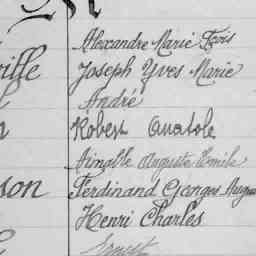 Alexandre Marie Frois
ville Joseph Yves Marie
André
Robert Anatole
Aimable Auguste Emile
son Ferdinand Georges
Henri Charles
Ernest